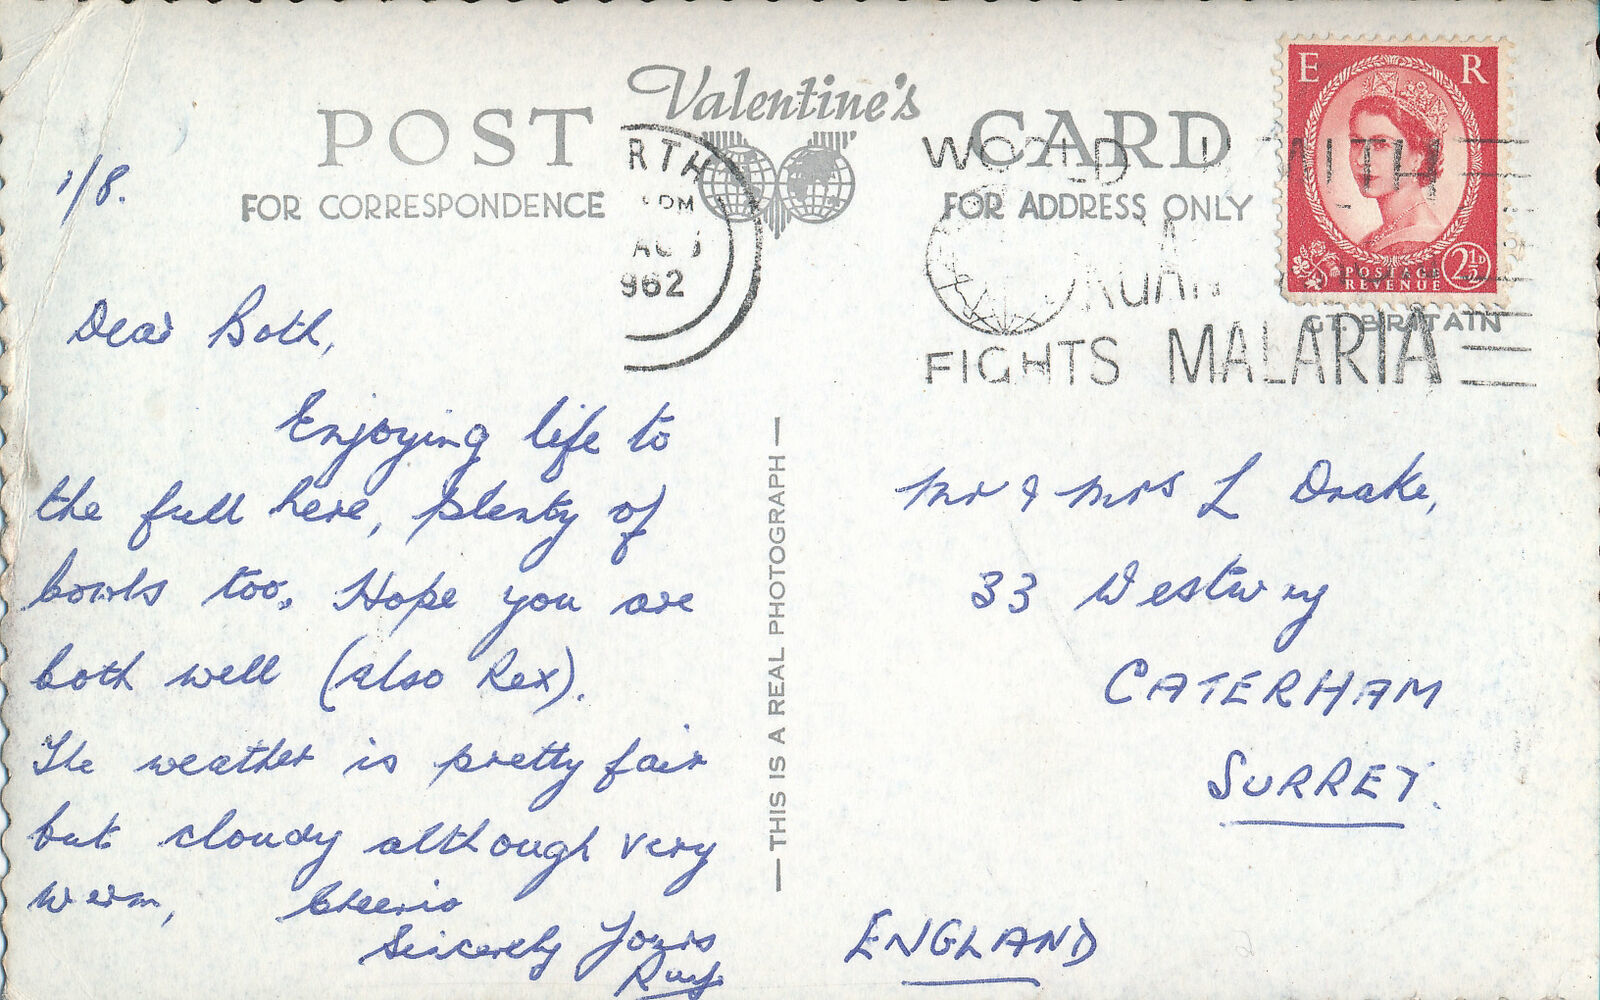 Valentine's
POST CARD
FOR CORRESPONDENCE
FOR ADDRESS ONLY
E R
POSTAGE REVENUE 2½D
GT. BRITAIN
RTH
PM
AUG
962
WORLD WITH
FIGHTS MALARIA
1/8.
Dear Both,
Enjoying life to
the full here, plenty of
bowls too. Hope you are
both well (also Rex).
The weather is pretty fair
but cloudy although very
warm, Cheerio
Sincerely Yours
Ray
— THIS IS A REAL PHOTOGRAPH —
Mr & Mrs L Drake,
33 Westway
CATERHAM
SURREY.
ENGLAND